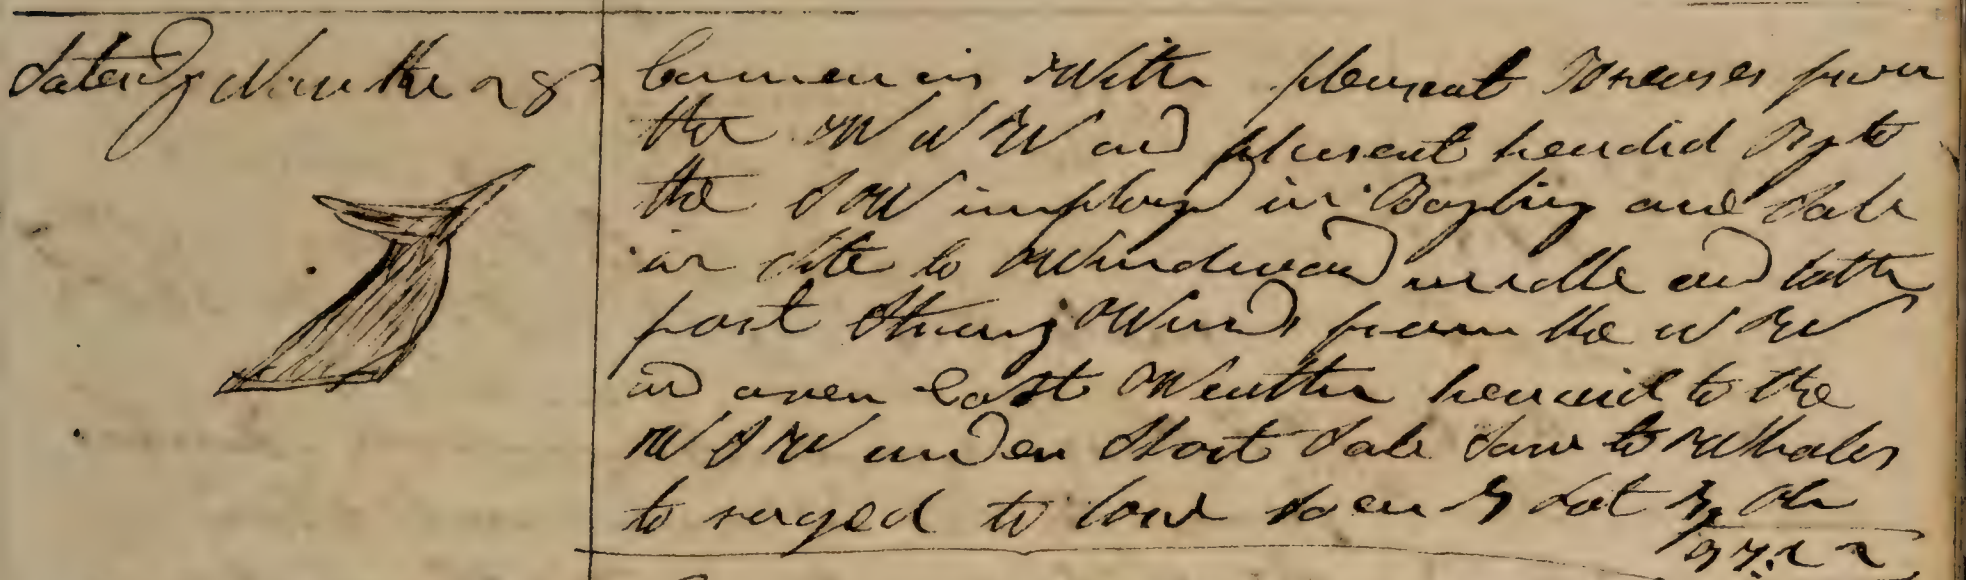 Saterdy Nov the 28
Comences With plesent Breases from
the W N W and plesent headed By to
the S W imployed in Boyling and Sale
in site to Windward midle and latter
part Strong Winds from the N W
and over Cast Weather headed to the
W S W under Short Sale Saw to Whales
to ruged to low So ends Lat By Ob